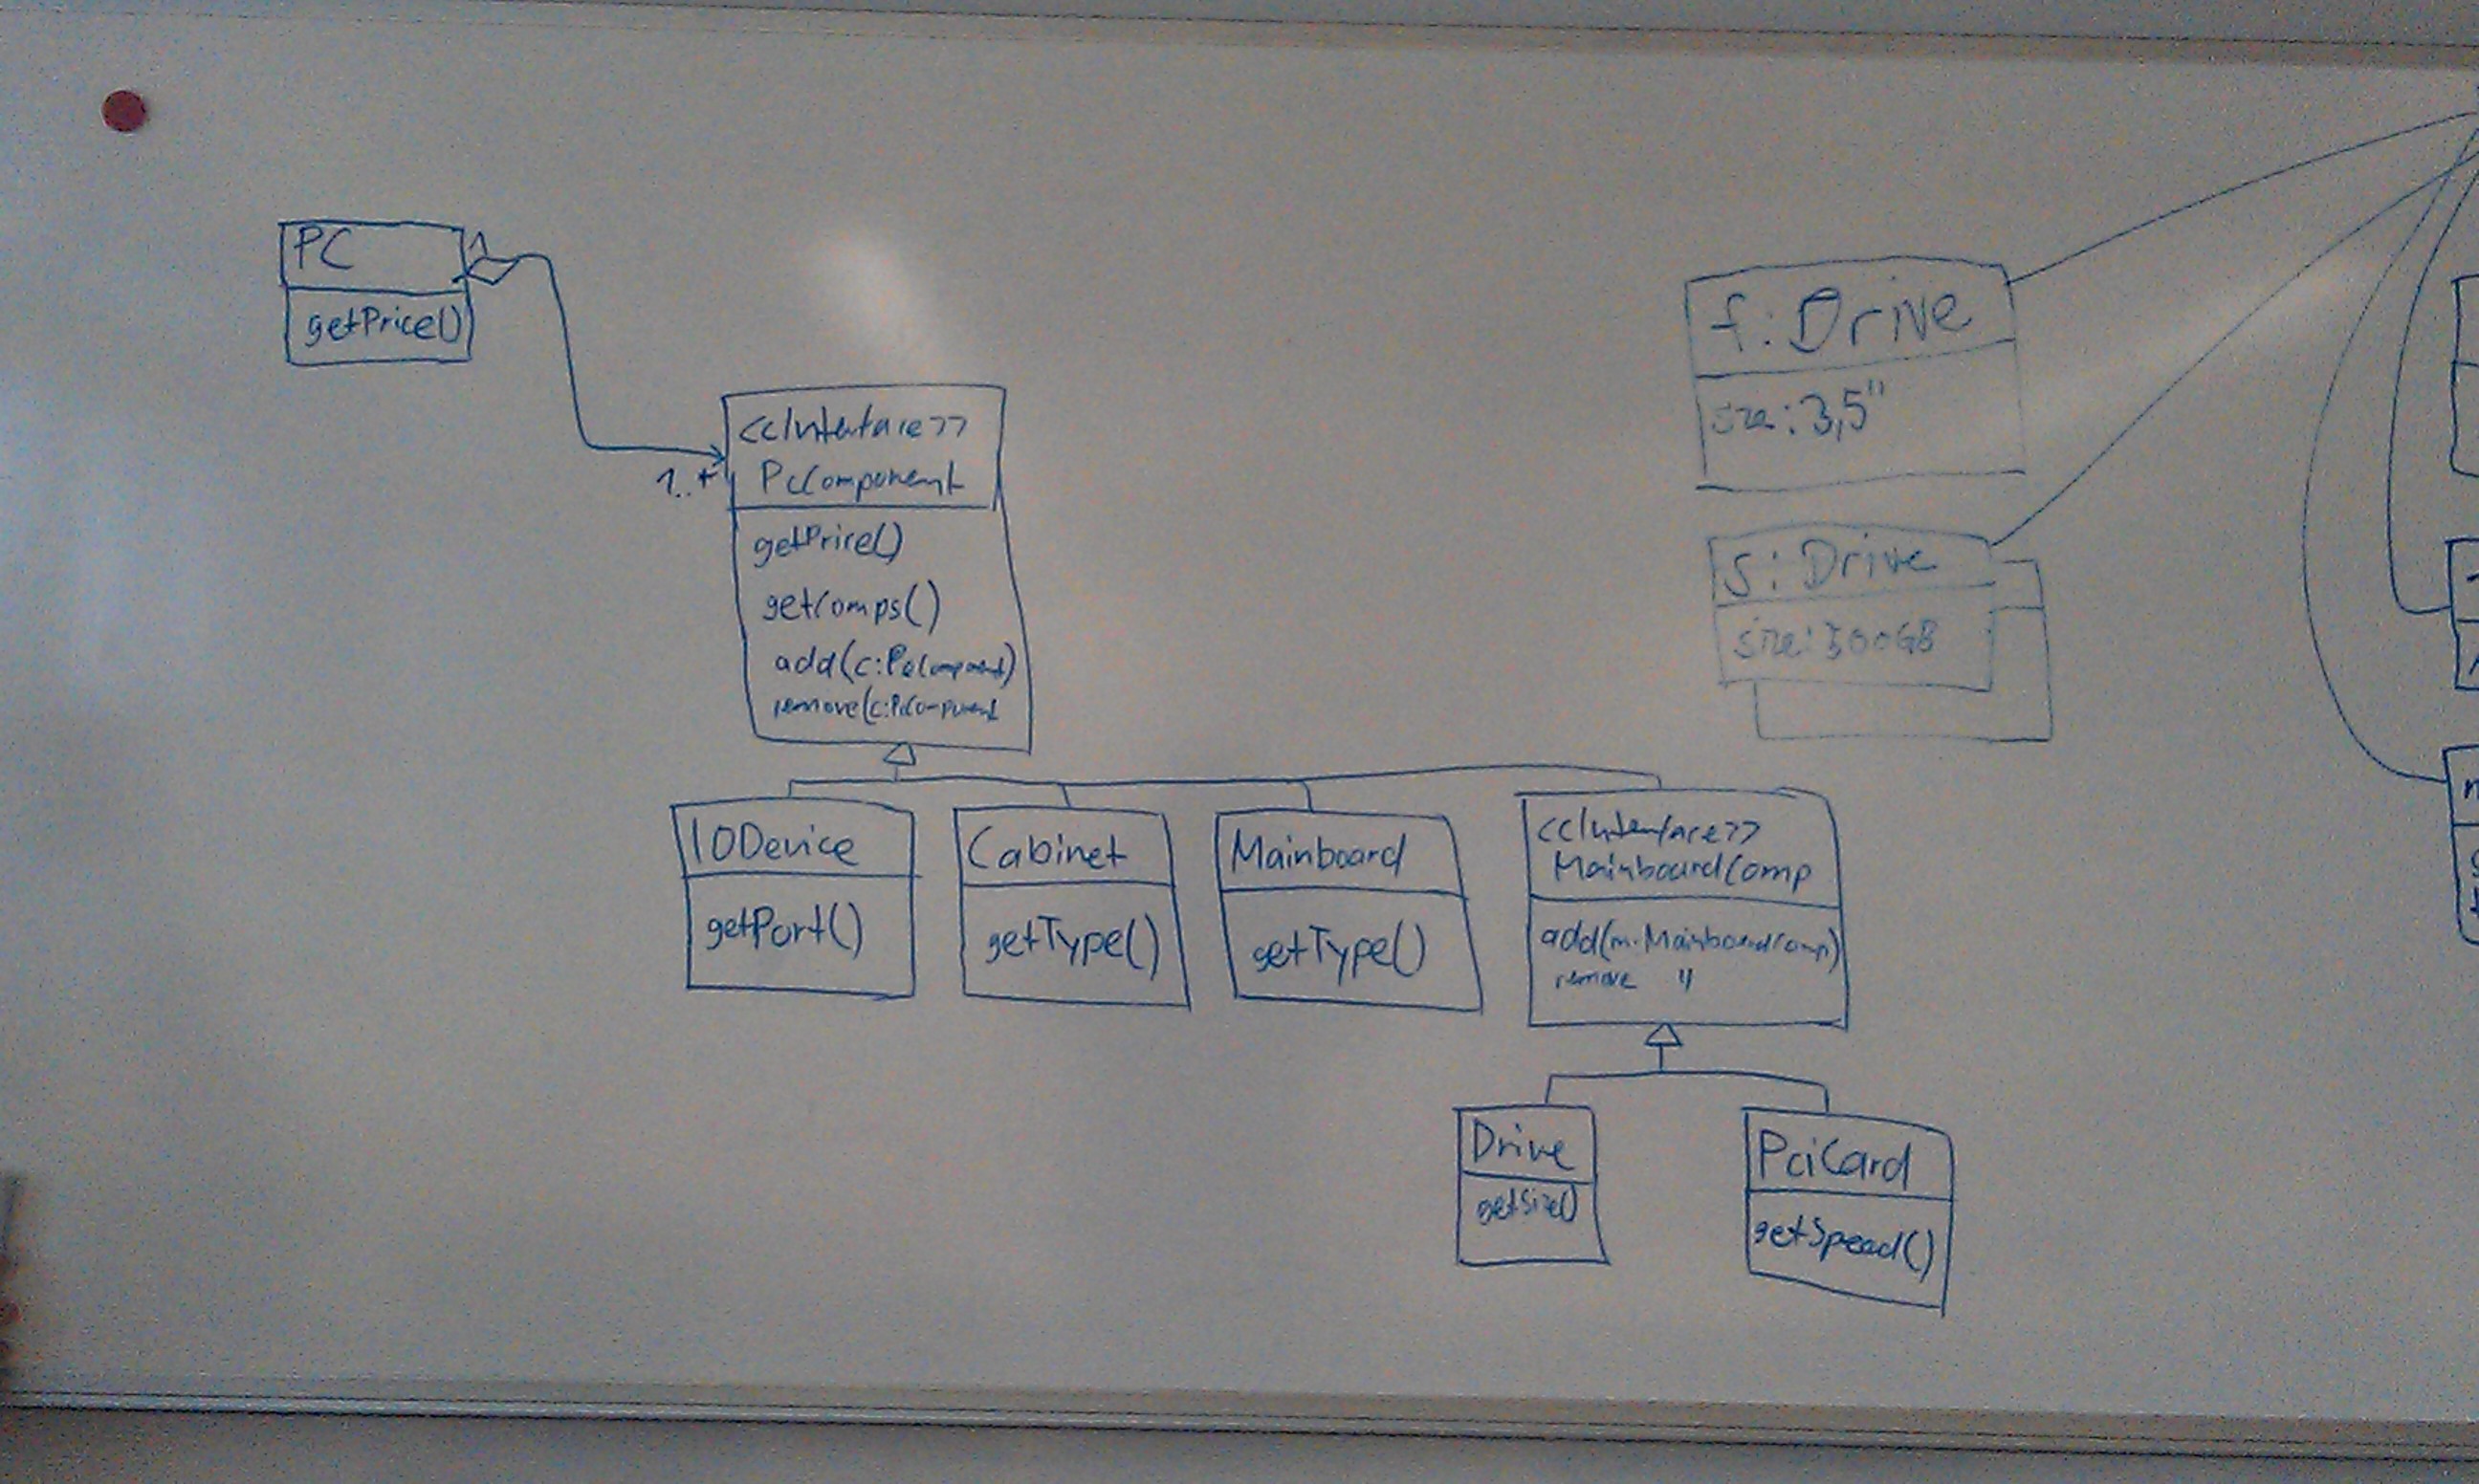 PC
1
getPrice()
1..*
<<Interface>>
PcComponent
getPrice()
getComps()
add(c:PcComponent)
remove(c:PcComponent
IODevice
getPort()
Cabinet
getType()
Mainboard
getType()
<<Interface>>
MainboardComp
add(m:MainboardComp)
remove "
Drive
getSize()
PciCard
getSpeed()
f:Drive
size:3,5"
s:Drive
size:300GB